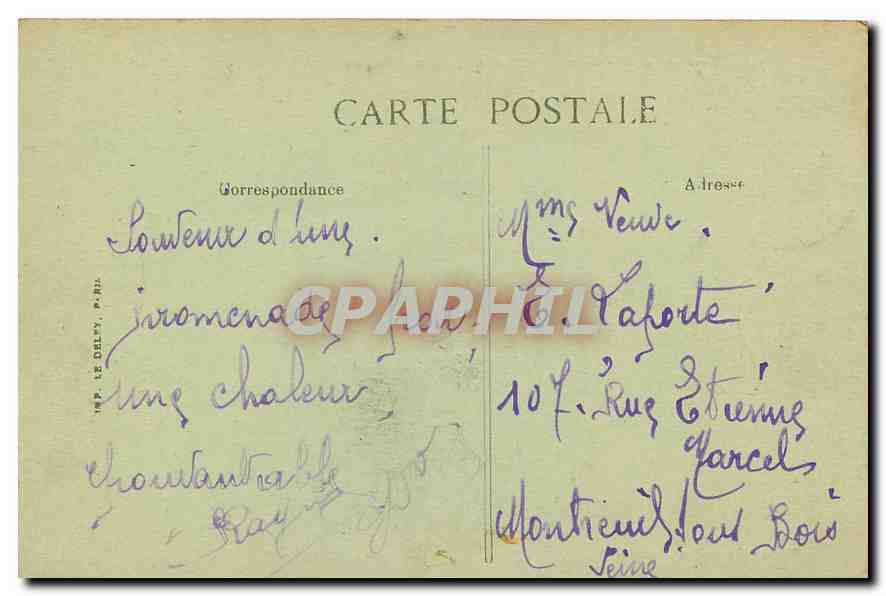 CARTE POSTALE
Correspondance
Adresse
Souvenir d'une.
promenade par
une chaleur
IMP. LE DELEY, PARIS
Mme Veuve.
E. Laporte
107. Rue Etienne
Marcel
Montreuil sous Bois
Seine
CPAPHIL.COM